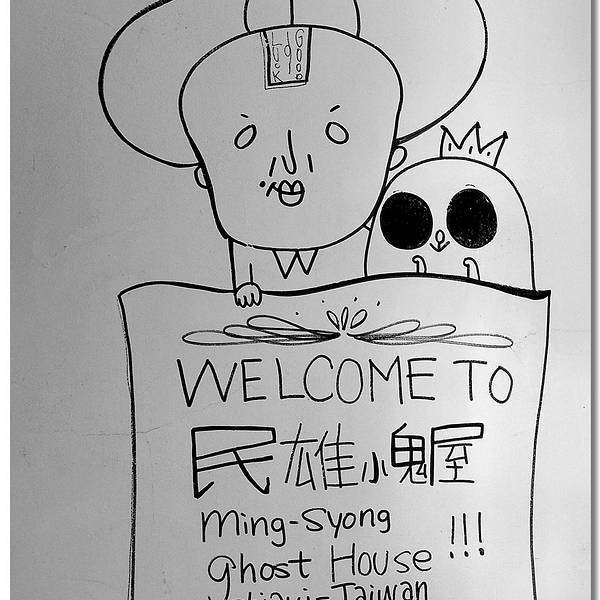 WELCOME TO
民雄小鬼屋
Ming-Syong
Ghost House !!!
Taiwan